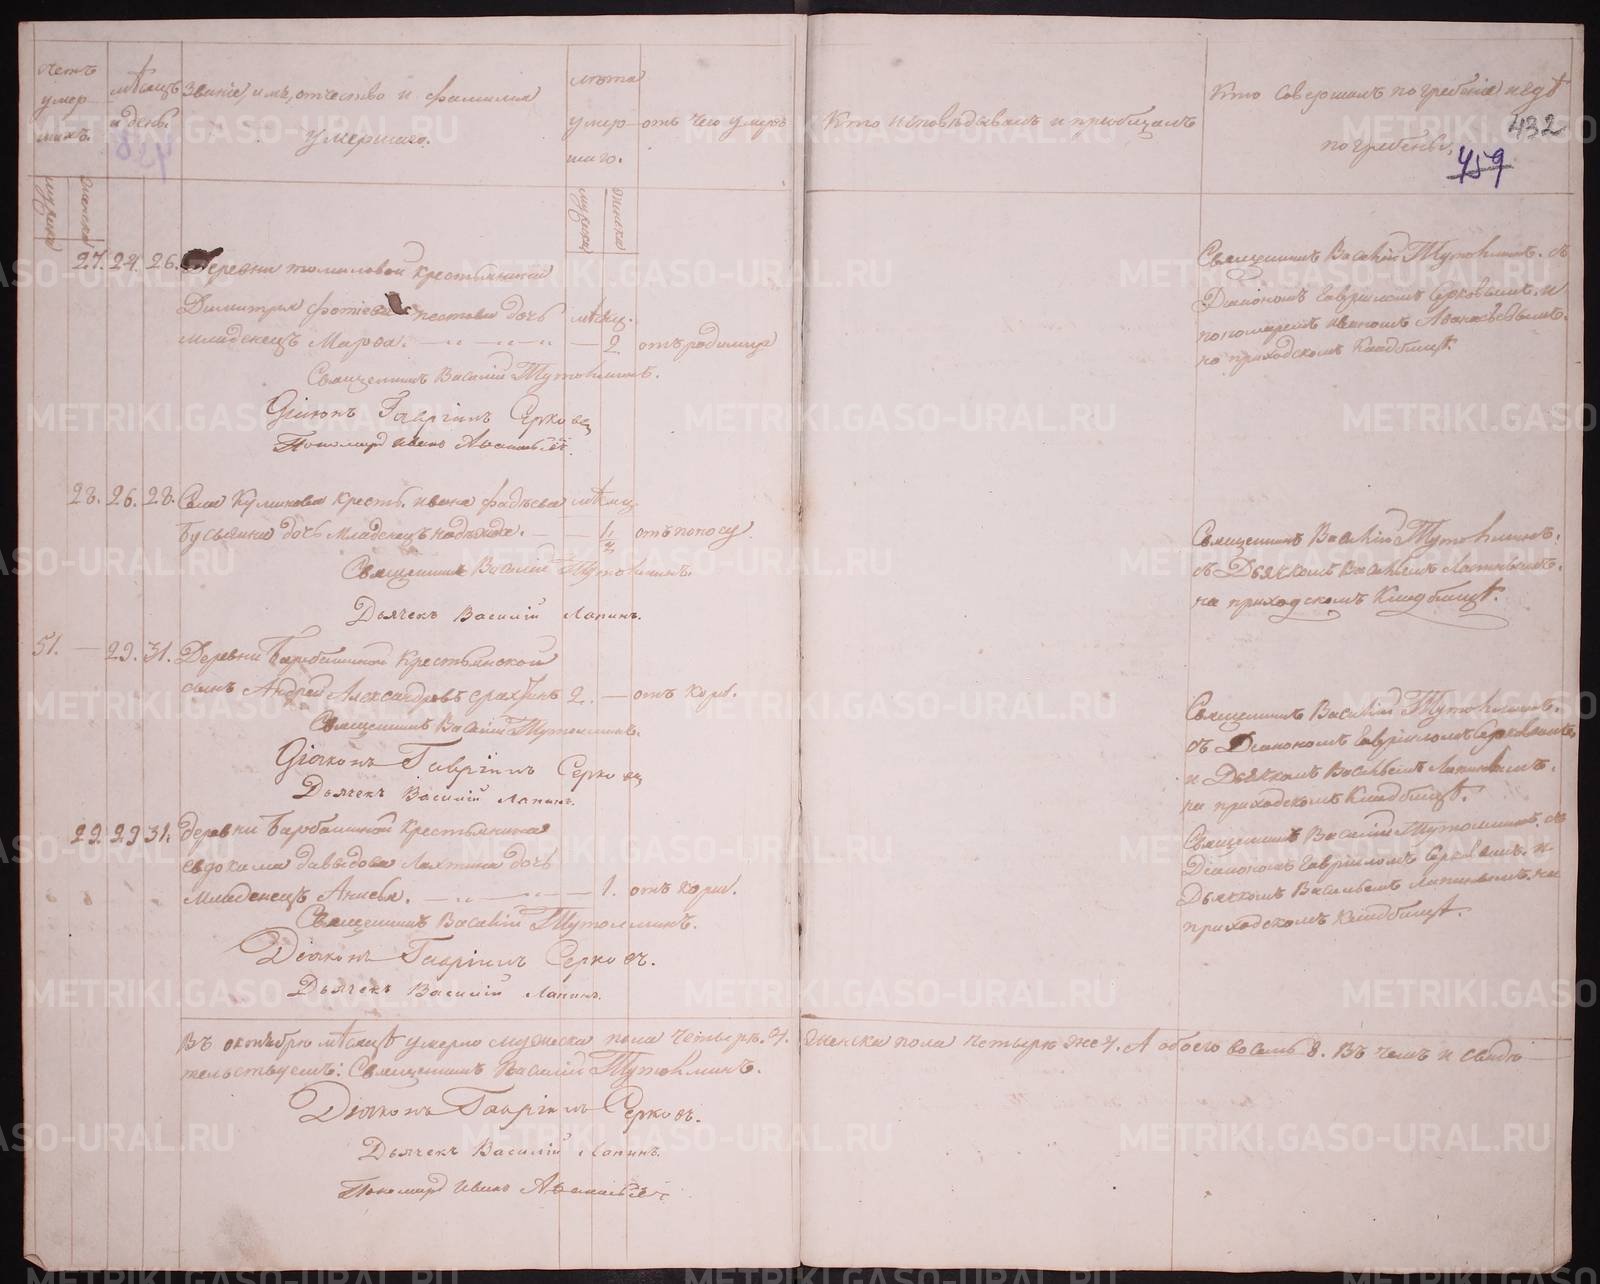 Счетъ умершихъ.
Мѣсяцъ и день.
Званіе, имя, отчество и фамилія умершаго.
Лѣта умершаго.
отъ чего умеръ
Кто исповѣдывалъ и пріобщалъ
Кто совершалъ погребеніе и гдѣ погребены
432
459
мужеска
женска
мужеска
женска
27. 24. 26. Деревни Томиловой крестьянина
Димитрія Фотіева Пестова дочь мѣсяц.
младенецъ Марѳа. 2 отъ родимца
Священникъ Василій Тутолминъ. съ
Діакономъ Гавриломъ Серковымъ. и
пономаремъ Иваномъ Аѳанасьевымъ.
на приходскомъ Кладбищѣ.
Священникъ Василій Тутолминъ.
Діаконъ Гавріилъ Серковъ
Пономарь Иванъ Аѳанасьевъ.
28. 26. 28. Села Куликова крест. Ивана Фадѣева мѣсяц.
дочь младенецъ Надежда. отъ поносу
Священникъ Василій Тутолминъ.
съ Дьячкомъ Васильемъ Лапинымъ.
на приходскомъ Кладбищѣ.
Священникъ Василій Тутолминъ.
Дьячекъ Василій Лапинъ.
51. — 29. 31. Деревни Барабашиной крестьянской
сынъ Андрей Александровъ 2. — отъ кори.
Священникъ Василій Тутолминъ.
съ Діакономъ Гавриломъ Серковымъ,
и Дьячкомъ Васильемъ Лапинымъ.
на приходскомъ Кладбищѣ.
Священникъ Василій Тутолминъ.
Діаконъ Гавріилъ Серковъ
Дьячекъ Василій Лапинъ.
29. 29 31. Деревни Барабашиной крестьянина
Евдокима Давыдова Лахтина дочь
младенецъ Анисья. 1. отъ кори.
Священникъ Василій Тутолминъ. съ
Діакономъ Гавриломъ Серковымъ. и
Дьячкомъ Васильемъ Лапинымъ. на
приходскомъ Кладбищѣ.
Священникъ Василій Тутолминъ.
Діаконъ Гавріилъ Серковъ.
Дьячекъ Василій Лапинъ.
Въ октябрѣ мѣсяцѣ умерло мужеска пола четыре. 4. женска пола четыре же 4. А обоего восемь 8. Въ чемъ и свидѣ-
тельствуемъ: Священникъ Василій Тутолминъ.
Діаконъ Гавріилъ Серковъ.
Дьячекъ Василій Лапинъ.
Пономарь Иванъ Аѳанасьевъ
METRIKI.GASO-URAL.RU